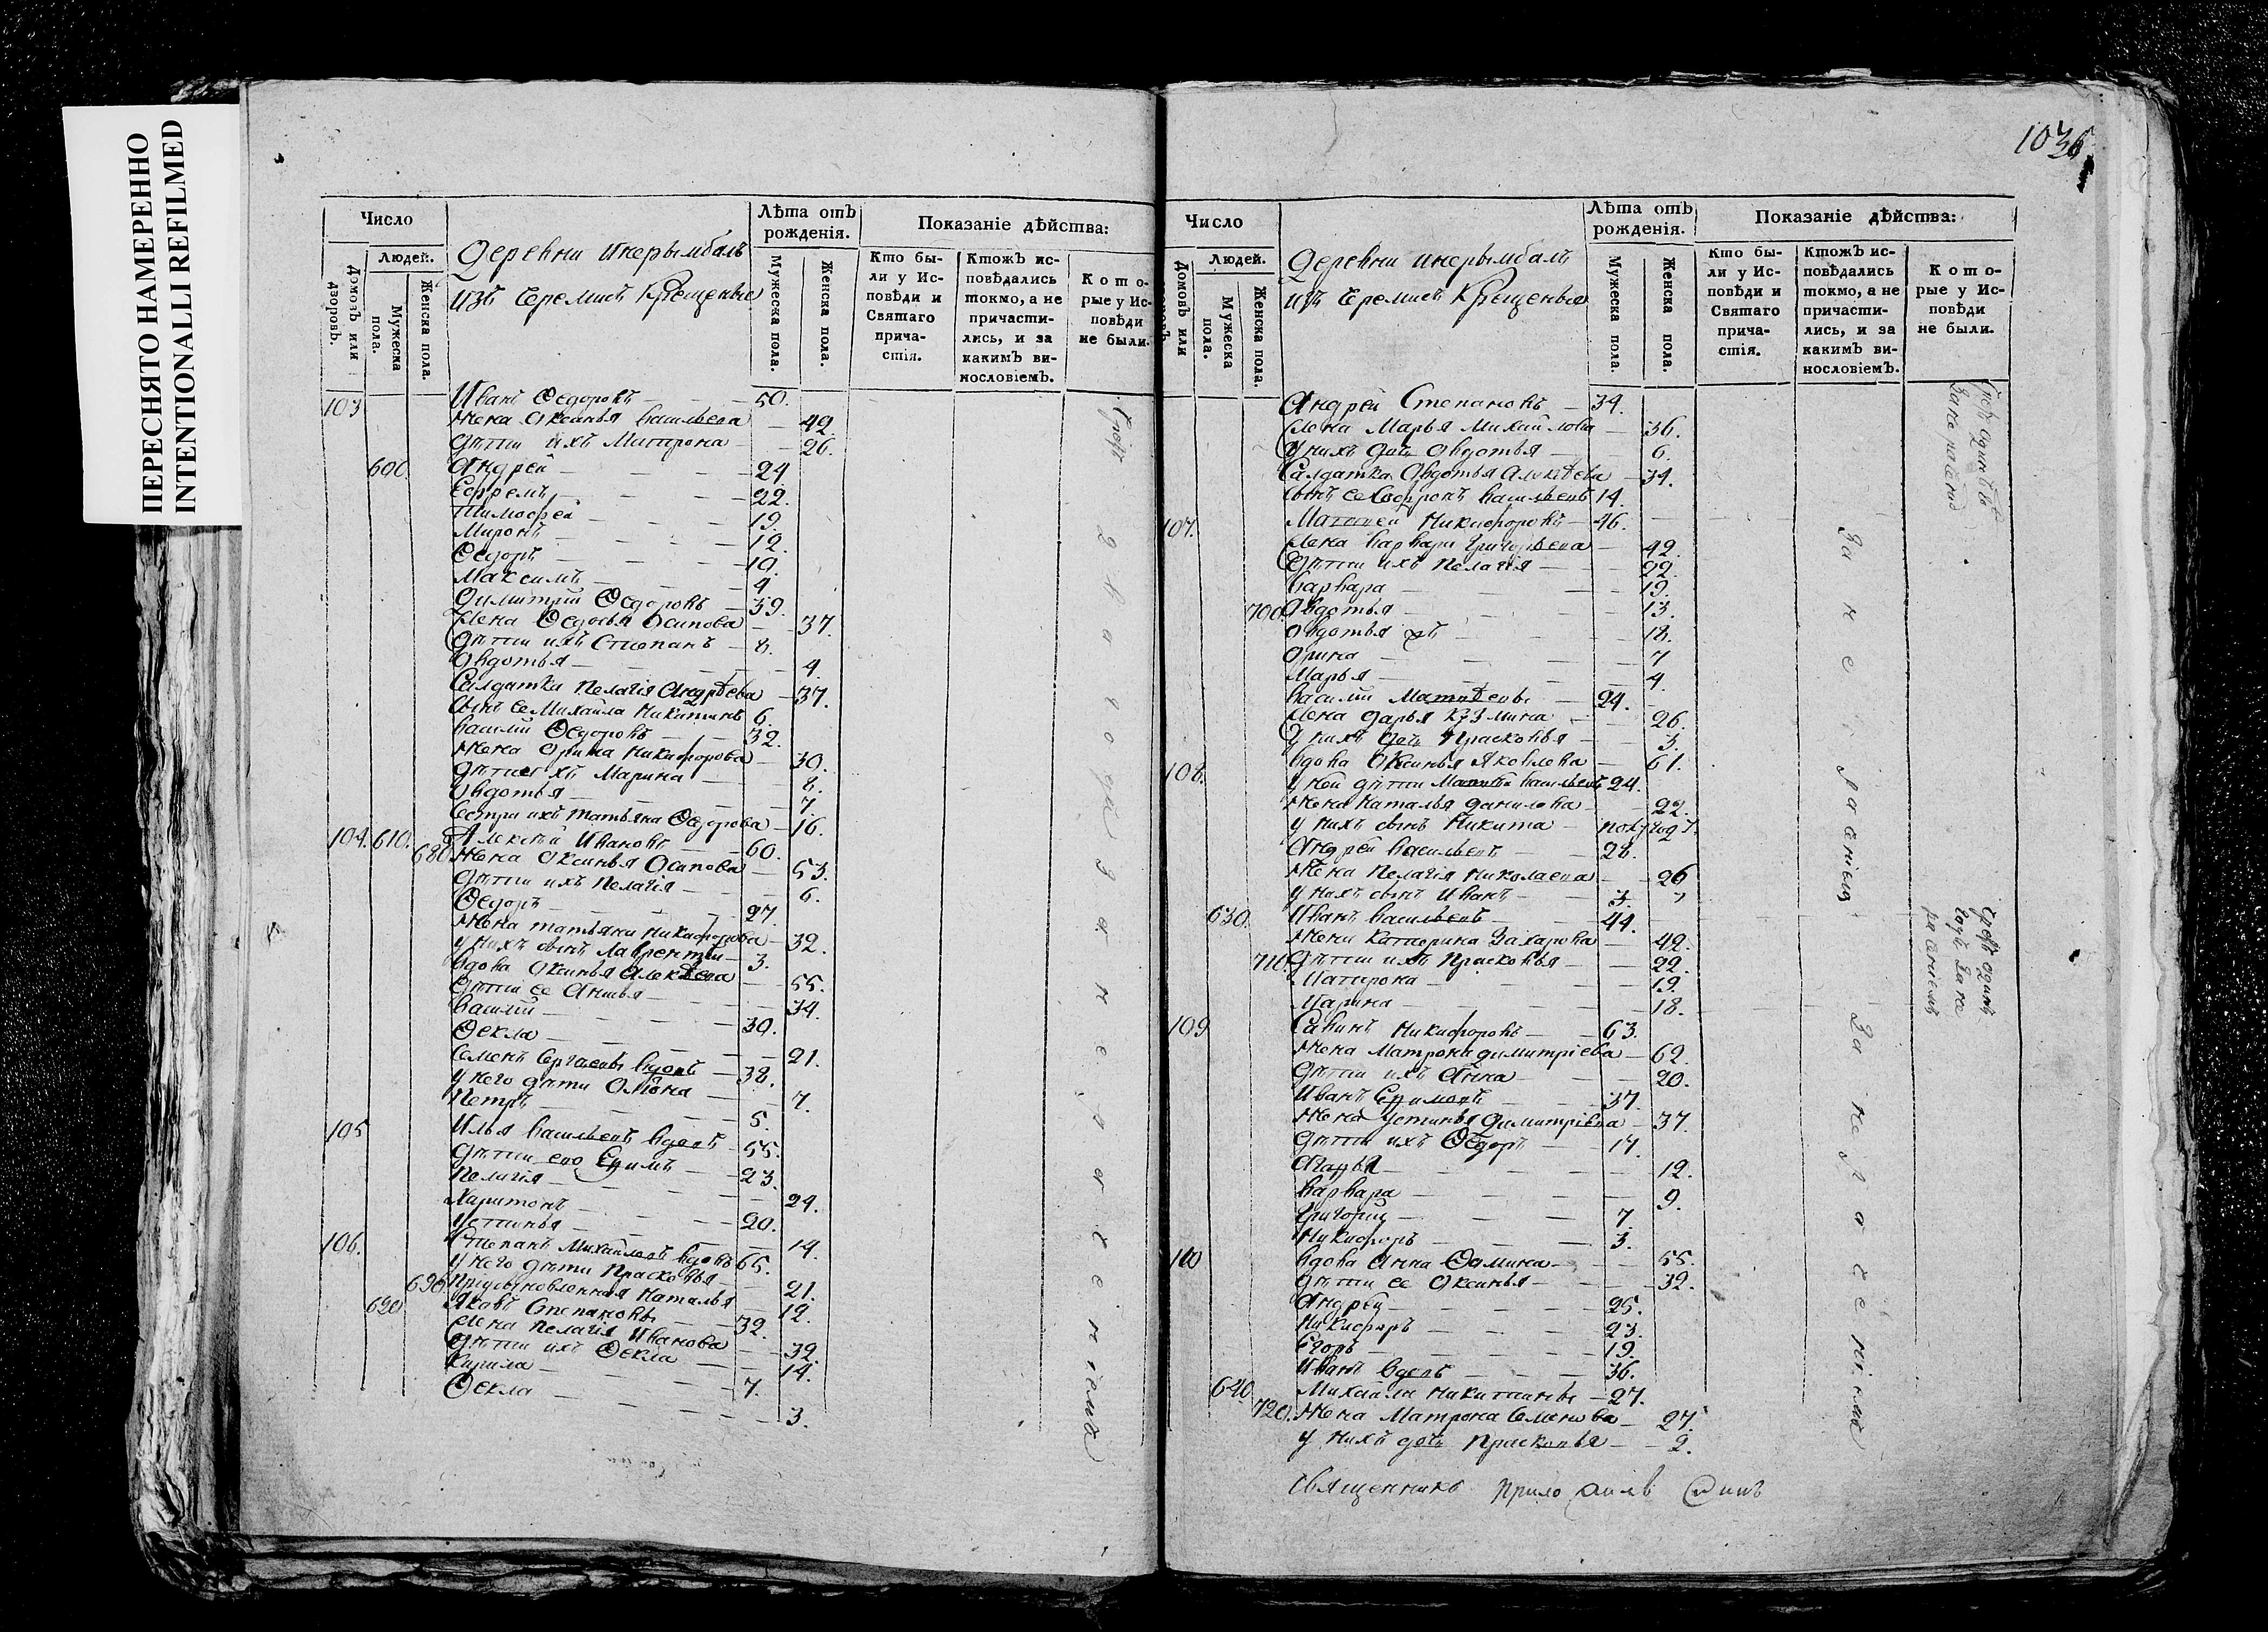 ПЕРЕСНЯТО НАМЕРЕННО
INTENTIONALLI REFILMED
Число
Домовъ или дворовъ.
Людей.
Мужеска пола.
Женска пола.
Деревни
изъ Черемисъ Крещеные
Лѣта отъ рожденія.
Мужеска пола.
Женска пола.
Показаніе дѣйства:
Кто были у Исповѣди и Святаго причастія.
Ктожъ исповѣдались токмо, а не причастились, и за какимъ винословіемъ.
Которые у Исповѣди не были.
103 Иванъ Ѳедоровъ 50.
Жена Оксинья Васильева 49.
дѣти ихъ Матрона 26.
600 Андрей 24
Ефремъ 22.
Тимофей 19.
Миронъ 12.
Ѳедоръ 10.
Максимъ 4
Димитрий Ѳедоровъ 39.
Жена Ѳедосья Осипова 37.
дѣти ихъ Степанъ 8.
Овдотья 4.
Салдатка Пелагія Андрѣева 37.
сынъ ее Михайла Никитинъ 6.
Василий Ѳедоровъ 32.
Жена Орина Никифорова 30.
дѣти их Марина 8.
Овдотья 7.
сестра ихъ Татьяна Ѳедорова 16.
104. 610. Алексѣй Ивановъ 60.
680 Жена Оксинья Осипова 53.
дѣти ихъ Пелагія 6.
Ѳедоръ 27.
Жена Татьяна Никифорова 32.
у нихъ сынъ Лаврентий 3.
вдова Оксинья Алексѣева 55.
дѣти ее 34.
Василий 30.
Ѳекла 21.
Семенъ Сергѣевъ вдовъ 38.
у него дѣти Олѣона 7.
Петръ 5.
105 Илья Васильевъ вдовъ 55.
дѣти его Ефимъ 23.
Пелагія 24.
Харитонъ 20.
Устинья 14.
106. Степанъ Михайловъ вдовъ 65.
у него дѣти Прасковья 21.
690 Наталья 12.
620 Яковъ Степановъ 32.
Жена Пелагія Иванова 32
дѣти ихъ Ѳекла 14.
Кирила 7.
Ѳекла 3.
1036
Число
Домовъ или
Людей.
Мужеска пола.
Женска пола.
Деревни
изъ Черемисъ Крещеные
Лѣта отъ рожденія.
Мужеска пола.
Женска пола.
Показаніе дѣйства:
Кто были у Исповѣди и Святаго причастія.
Ктожъ исповѣдались токмо, а не причастились, и за какимъ винословіемъ.
Которые у Исповѣди не были.
Андрей Степановъ 34.
Жена Марья Михайлова 36.
у нихъ дочь Овдотья 6.
Салдатка Овдотья Алексѣева 34.
сынъ ее Софронъ Васильевъ 14.
107. Матвей Никифоровъ 46.
Жена Варвара Григорьева 42.
дѣти ихъ Пелагія 22.
Варвара 19.
700 Овдотья 13.
Овдотья 18.
Орина 7
Марья 4.
Василий Матвѣевъ 24.
Жена Дарья Кузмина 26.
у нихъ дочь Прасковья 3.
108. вдова Оксинья Яковлева 61.
у ней дѣти Васильевъ 24.
Жена Наталья Данилова 22.
у нихъ сынъ Никита
Андрей Васильевъ 28.
Жена Пелагія Николаева 26
у нихъ сынъ Иванъ 3.
630. Иванъ Васильевъ 44.
Жена Катерина Захарова 42.
710. дѣти ихъ Прасковья 22.
Матрона 19.
Марина 18.
109 Савинъ Никифоровъ 63.
Жена Матрона Димитріева 62.
дѣти ихъ Анна 20.
Иванъ Ефимовъ 37.
Жена Устинья Димитріева 37.
дѣти ихъ Ѳедоръ 17.
12.
Варвара 9.
Григорий 7.
Никифоръ 3.
110 вдова Анна Ѳомина 55.
дѣти ее Оксинья 32.
Андрей 25.
Никифоръ 23.
Егоръ 19.
Иванъ вдовъ 36.
640. Михайла Никитинъ 27.
720. Жена Матрона Семенова 27.
у нихъ дочь Прасковья 2.
Священникъ